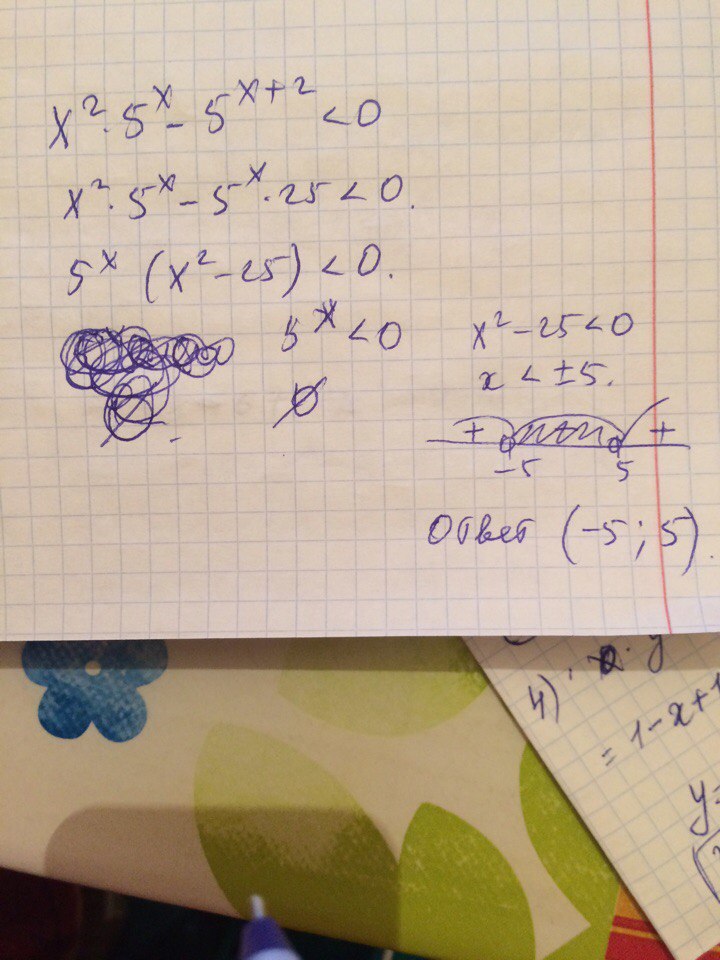 x²·5ˣ - 5ˣ⁺² < 0
x²·5ˣ - 5ˣ·25 < 0.
5ˣ (x² - 25) < 0.
5ˣ < 0
∅
x² - 25 < 0
x < ±5.
+ +
-5 5
Ответ (-5; 5).
4)
= 1-x+1
y=